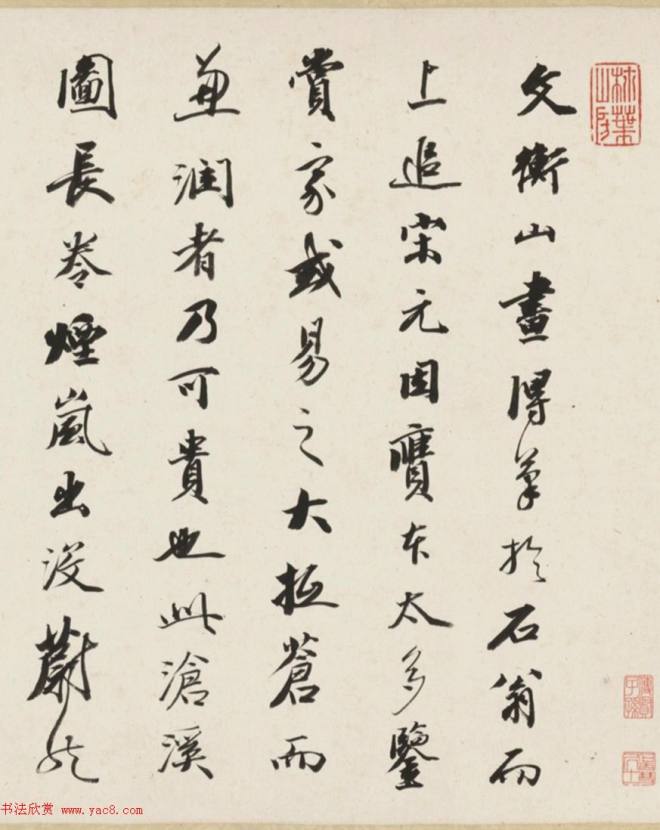 文衡山畫得筆於石翁而
上追宋元因贋本太多鑒
賞家或易之大抵蒼而
兼潤者乃可貴也此滄溪
圖長卷煙嵐出沒蔚然
书法欣赏 www.yac8.com